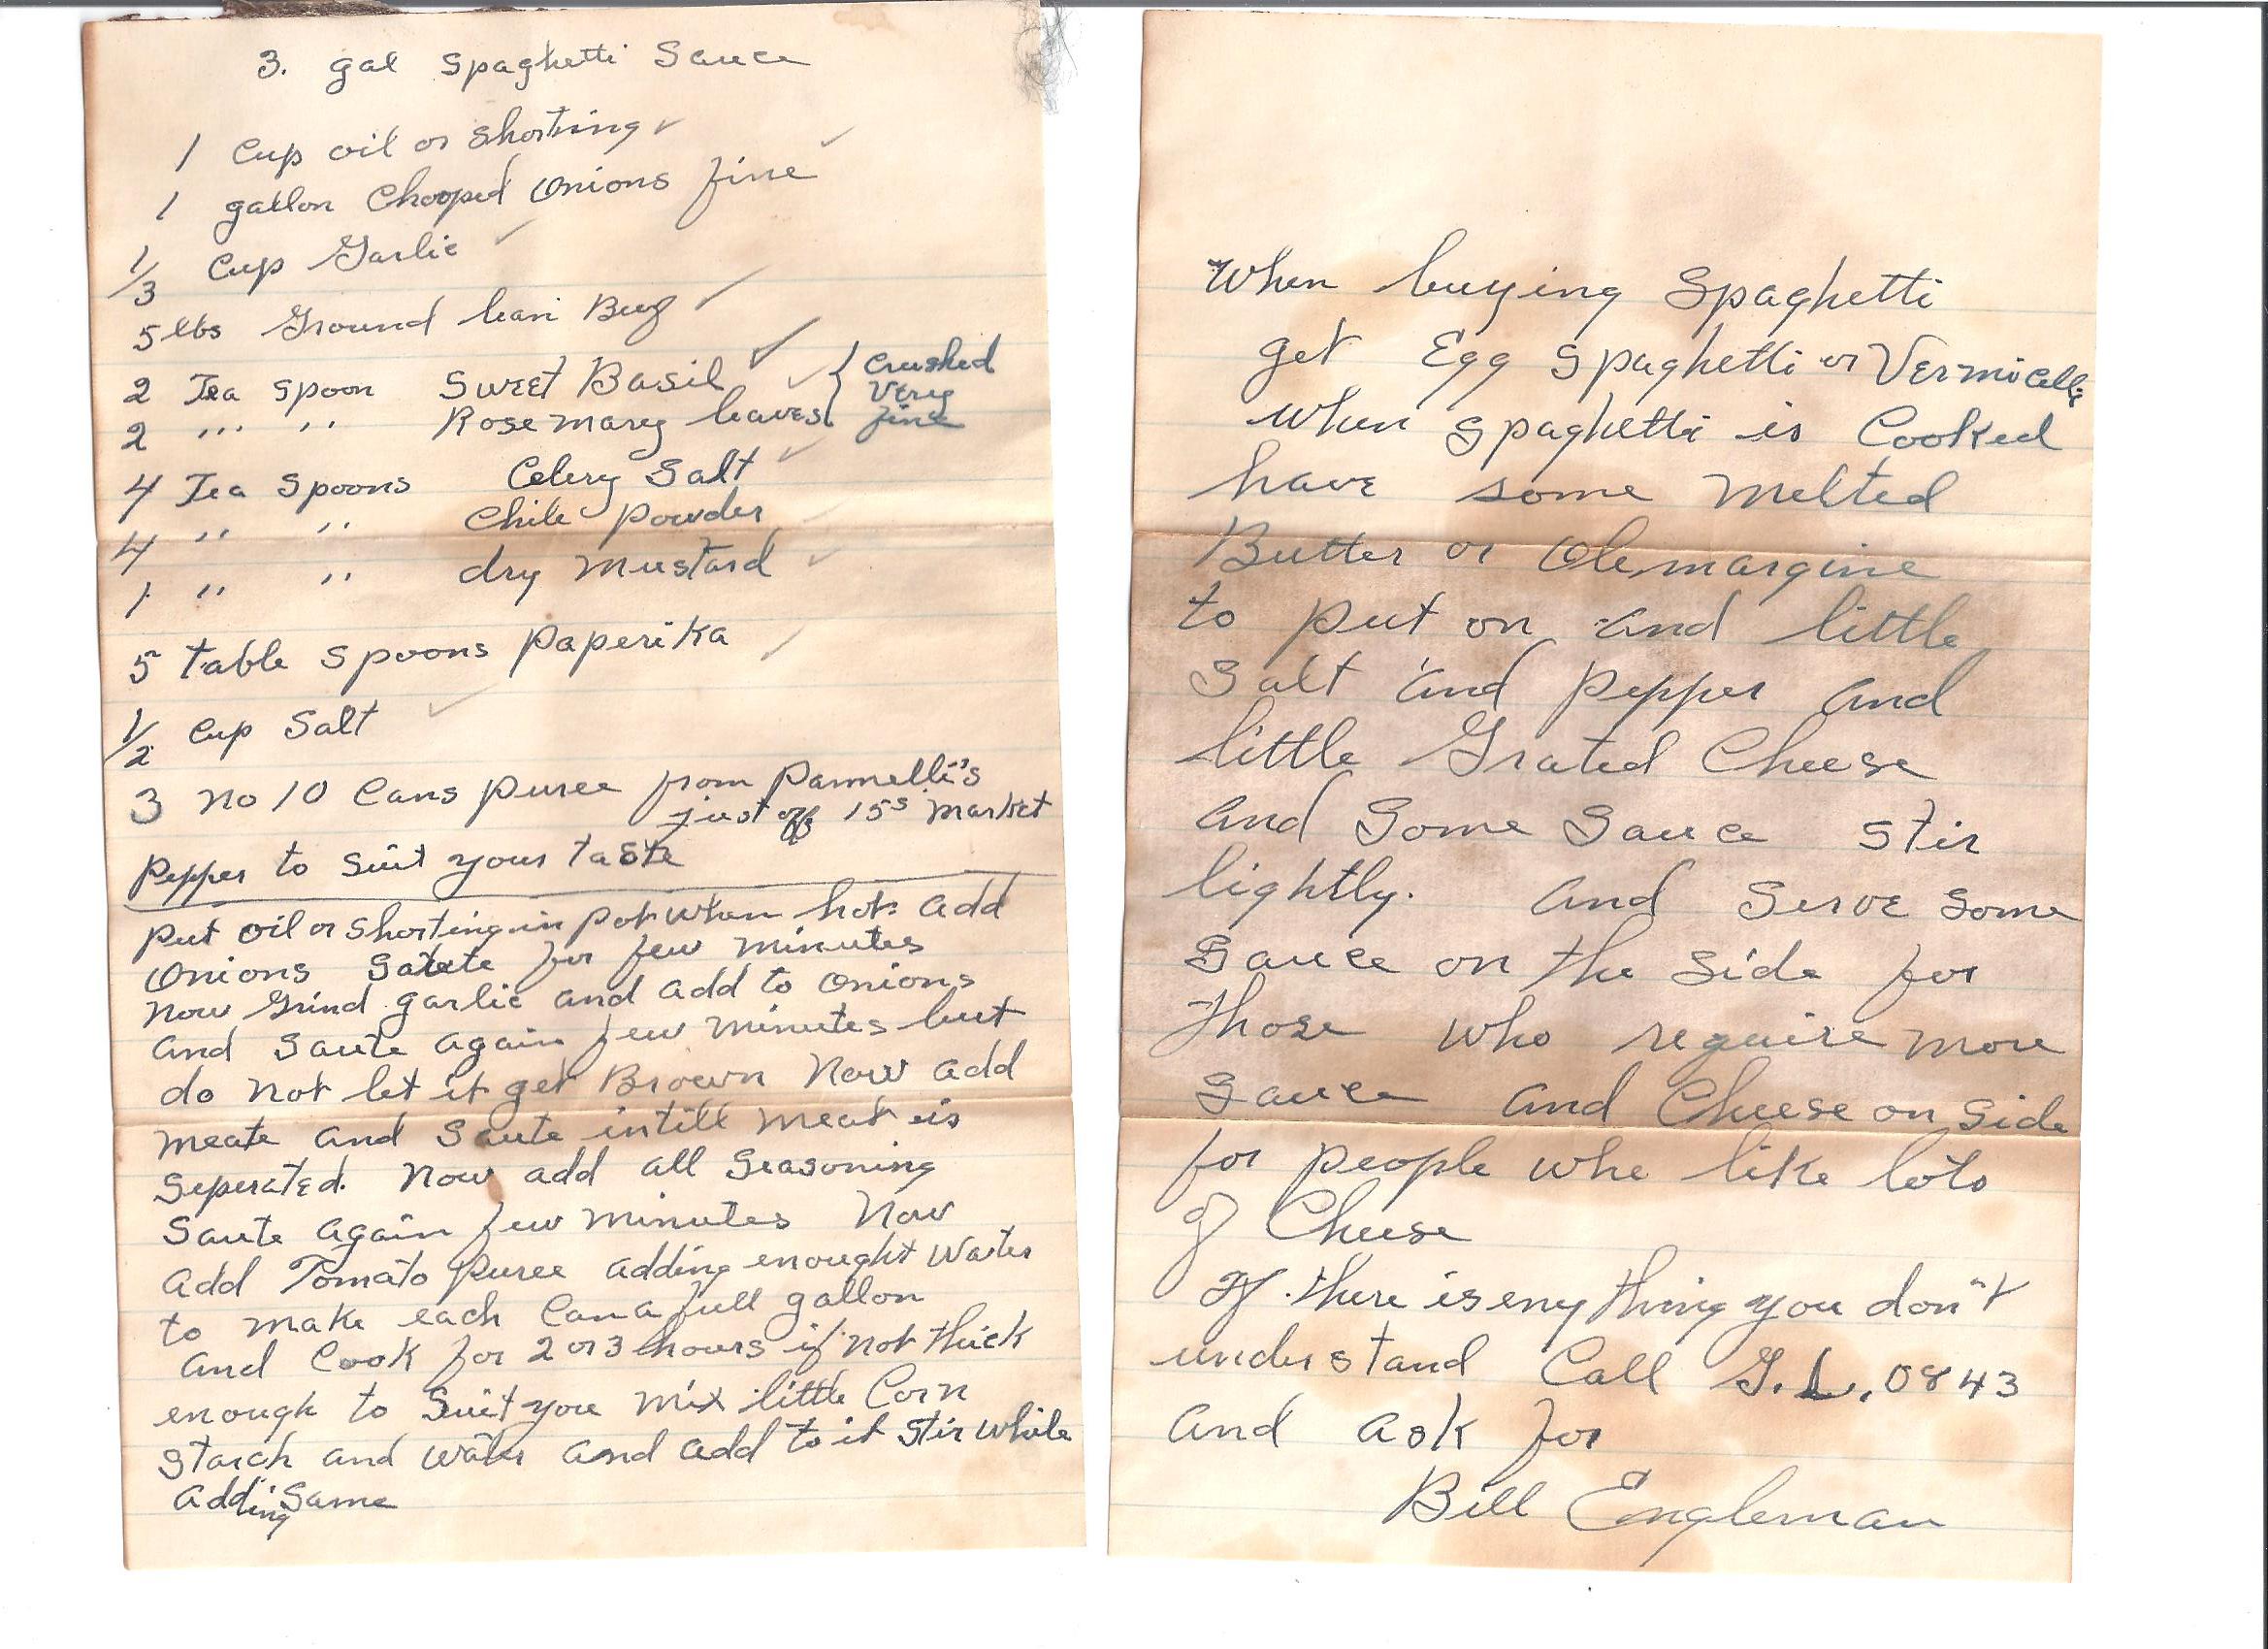 3. gal Spaghetti Sauce
1 Cup oil or Shorting
1 gallon Chooped Onions fine
1/3 Cup Garlic
5 lbs Ground lean Beef
2 Tea Spoon Sweet Basil } Crushed
2 ''' '' Rosemary leaves } Very fine
4 Tea Spoons Celery Salt
4 '' '' Chile Powder
1 '' '' dry Mustard
5 table Spoons Paperika
1/2 Cup Salt
3 No 10 Cans Puree from Pannelli's
just off 15s Market
Pepper to Suit your taste
Put oil or Shorting in pot when hot add
Onions Saute for few minutes
Now Grind garlic and add to onions
and Saute again few minutes but
do not let it get Brown Now add
meate and Saute intill meat is
Seperated. Now add all Seasoning
Saute again few minutes Now
add Tomato Puree adding enought Water
to make each Can a full gallon
and Cook for 2 or 3 hours if not thick
enough to Suit you mix little Corn
Starch and Water and add to it Stir while
adding Same
When buying Spaghetti
get Egg Spaghetti or Vermicelli
when Spaghetti is Cooked
have some melted
Butter or Olemargine
to put on and little
Salt and Pepper and
little Grated Cheese
and Some Sauce Stir
lightly. and Serve Some
Sauce on the Side for
those who require more
Sauce and Cheese on Side
for people whe like lots
of Cheese
If there is eny thing you don't
understand Call G.L. 0843
and ask for
Bill Engleman